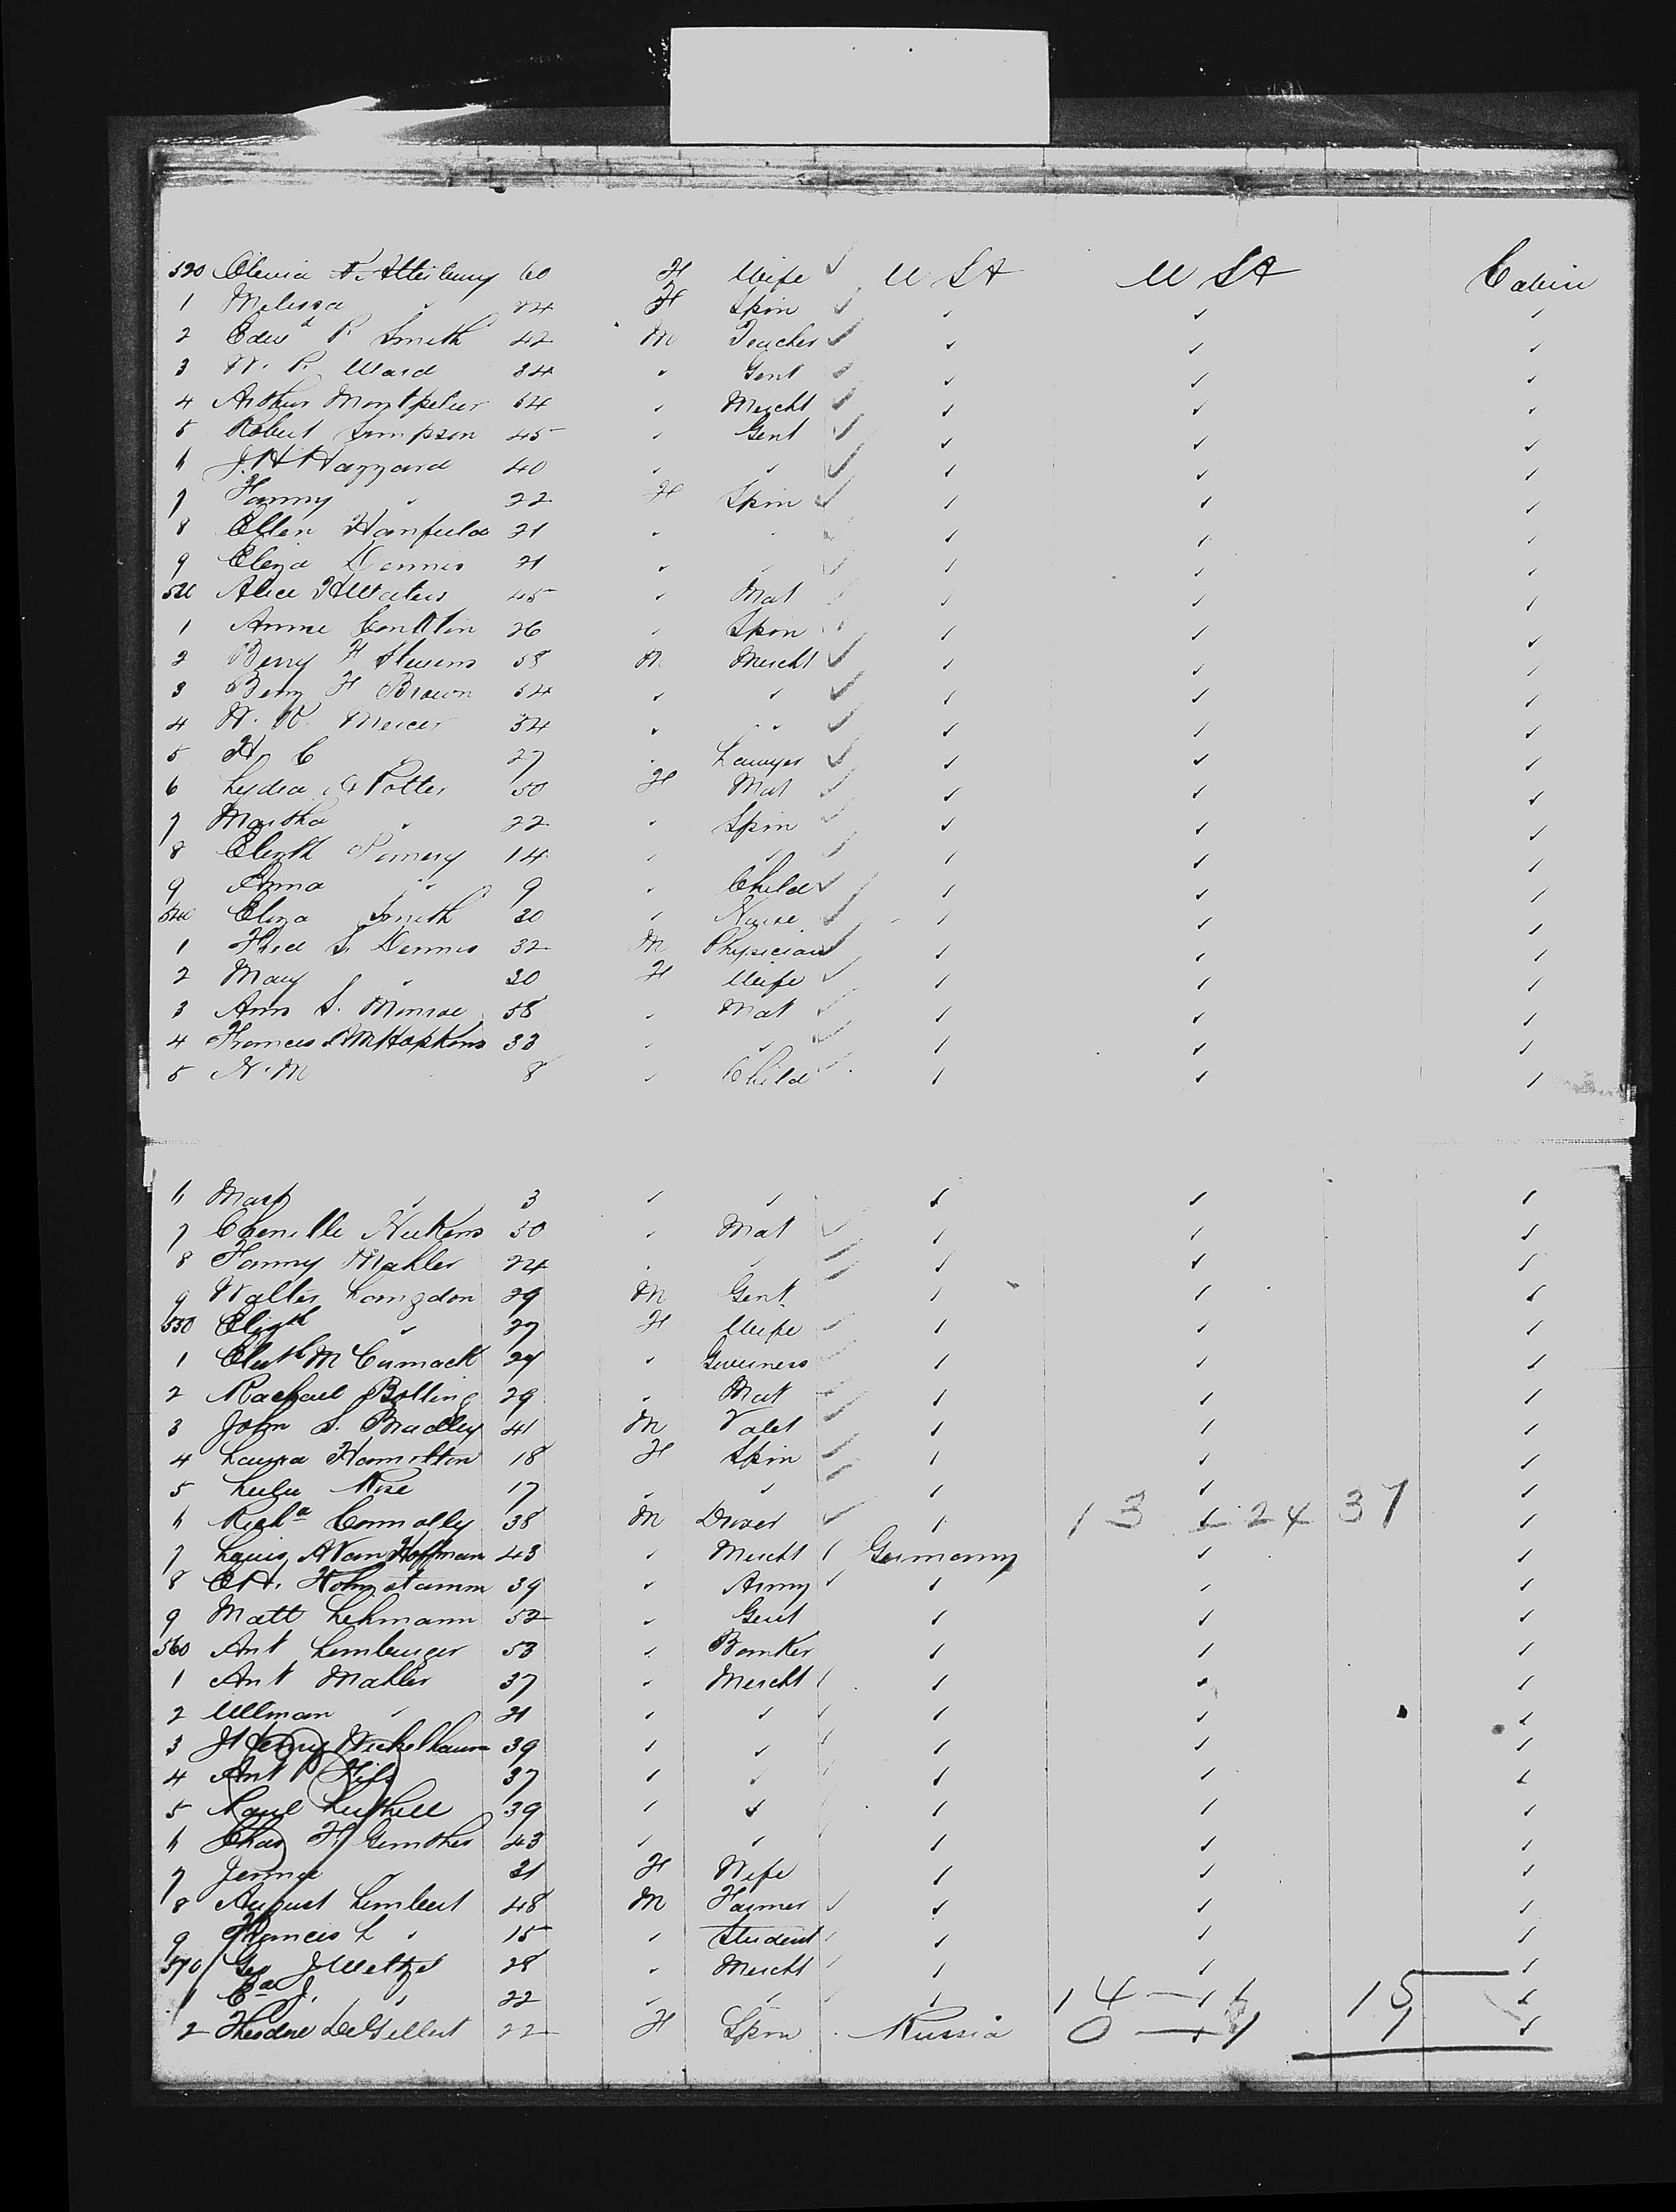 520 Olivia A. Atterbury 60 F Wife ✓ U SA U SA Cabin
1 Melissa " 24 F Spin ✓ " " "
2 Edwd P. Smith 42 M Teacher ✓ " " "
3 W. P. Ward 34 " Gent ✓ " " "
4 Arthur Montpelier 54 " Mercht ✓ " " "
5 Robert Simpson 45 " Gent ✓ " " "
6 J. H. Hazzard 40 " " ✓ " " "
7 Fanny " 22 F Spin ✓ " " "
8 Ellen 21 " " " " "
9 Eliza Dennis 21 " " " " "
Alice 45 " Mat " " "
1 Annie Conklin 26 " Spin " " "
2 Benj F Stevens 58 M Mercht ✓ " " "
3 Benj F Brown 54 " " ✓ " " "
4 W. R. Mercer 54 " " ✓ " " "
5 H. C " 27 " Lawyer ✓ " " "
6 Lydia Potter 50 F Mat ✓ " " "
7 Martha " 22 " Spin ✓ " " "
8 Elizth Pomery 14 " " ✓ " " "
9 Anna " 9 " Child ✓ " " "
540 Eliza Smith 20 " Nurse ✓ " " "
1 Fred S. Dennis 32 M Physician ✓ " " "
2 Mary " 30 F Wife ✓ " " "
3 Ann S. Monroe 58 " Mat ✓ " " "
4 Frances Hopkins 33 " " ✓ " " "
5 N. M 8 " Child " " "
6 Mary " 3 " " " " "
7 50 " Mat ✓ " " "
8 Fanny Mahler 24 " " ✓ " " "
9 Walter Langdon 29 M Gent " " "
550 Elizth " 27 F Wife ✓ " " "
1 McCormack 24 " Governess " " "
2 Rachael Bolling 29 " Mat ✓ " " "
3 John S. Bradley 41 M Valet ✓ " " "
4 Laura Hamilton 18 F Spin ✓ " " "
5 Lulu Rose 17 " " ✓ " " "
6 Richd Connolly 38 M Drover ✓ " 13 - 24 37 "
7 Louis A Von Hoffman 43 " Mercht Germany " "
8 Hohnstamm 39 " Army " " "
9 Matt Lehmann 52 " Gent " " "
560 Ant Lemburger 53 " Banker " " "
1 Ant Mahler 37 " Mercht " " "
2 Ullman " 21 " " " " "
3 Henry Wickelhaus 39 " " " " "
4 Ant 37 " " " " "
5 39 " " " " "
6 Chas H. Gunther 43 " " " " "
7 Jennie " 31 F Wife " " "
8 August Limbert 48 M Farmer " " "
9 Francis L " 15 " Student " " "
570 Geo J Wetzel 28 " Mercht " " "
1 J. " 22 " " " 14 — 1 15 "
2 Theodore DeGellert 22 F Spin Russia 0 — 1 1 "